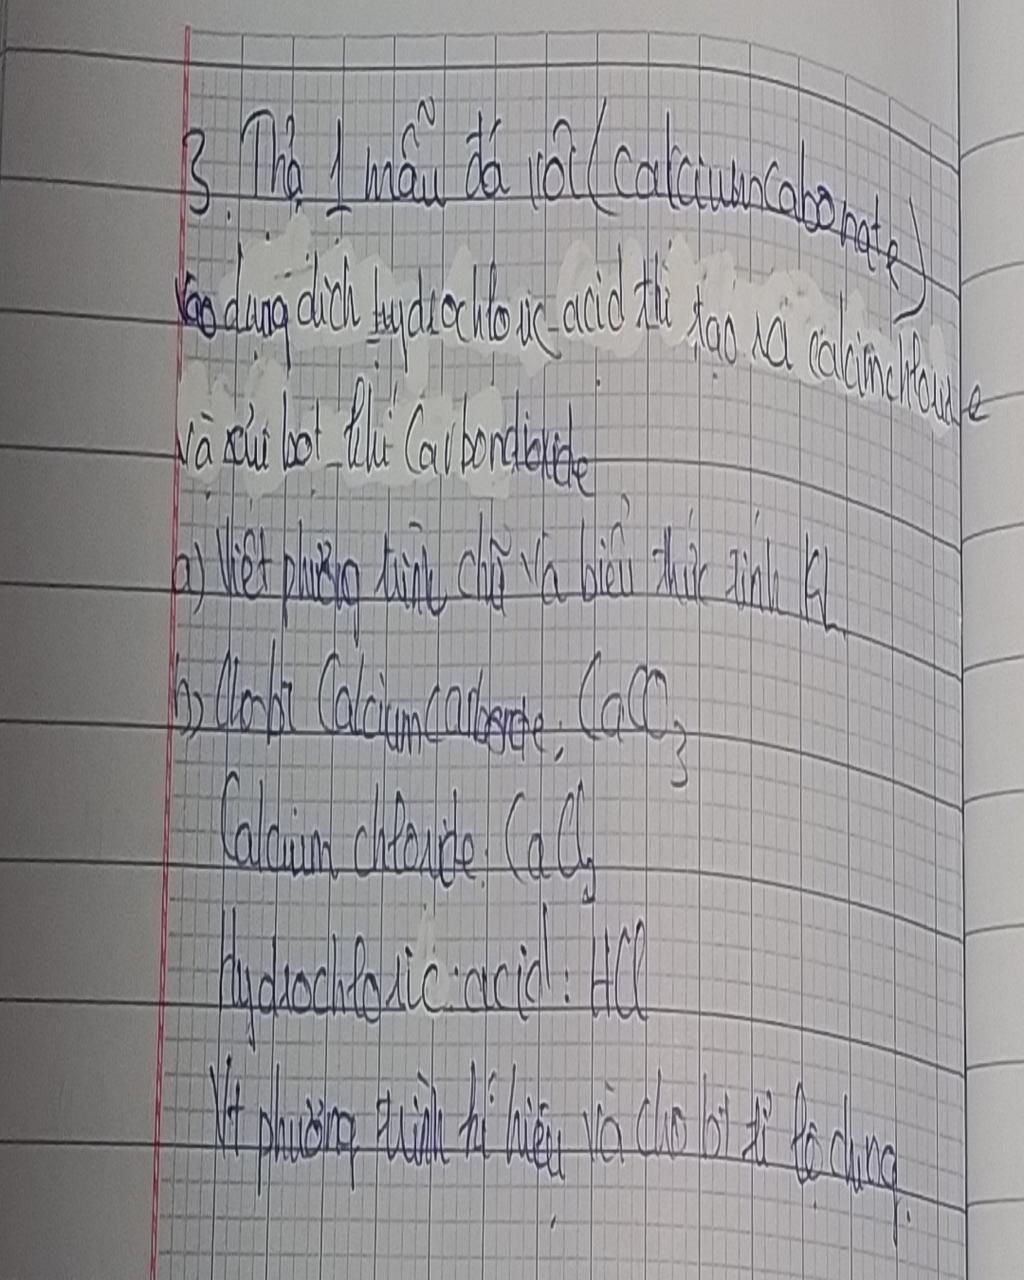 3. Thả 1 mẫu đá vôi (calciumcabonate)
vào dung dịch hydrochloric acid thì tạo ra calcimchloride
và sủi bọt khí Carbondioxide
a) Viết phương trình chữ và biểu thức tính KL
b) Cho bt Calciumcarbonate, CaCO3
Calcium chloride: CaCl2
Hydrochloric acid: HCl
Vt phương trình kí hiệu và cho bt tỉ lệ dung